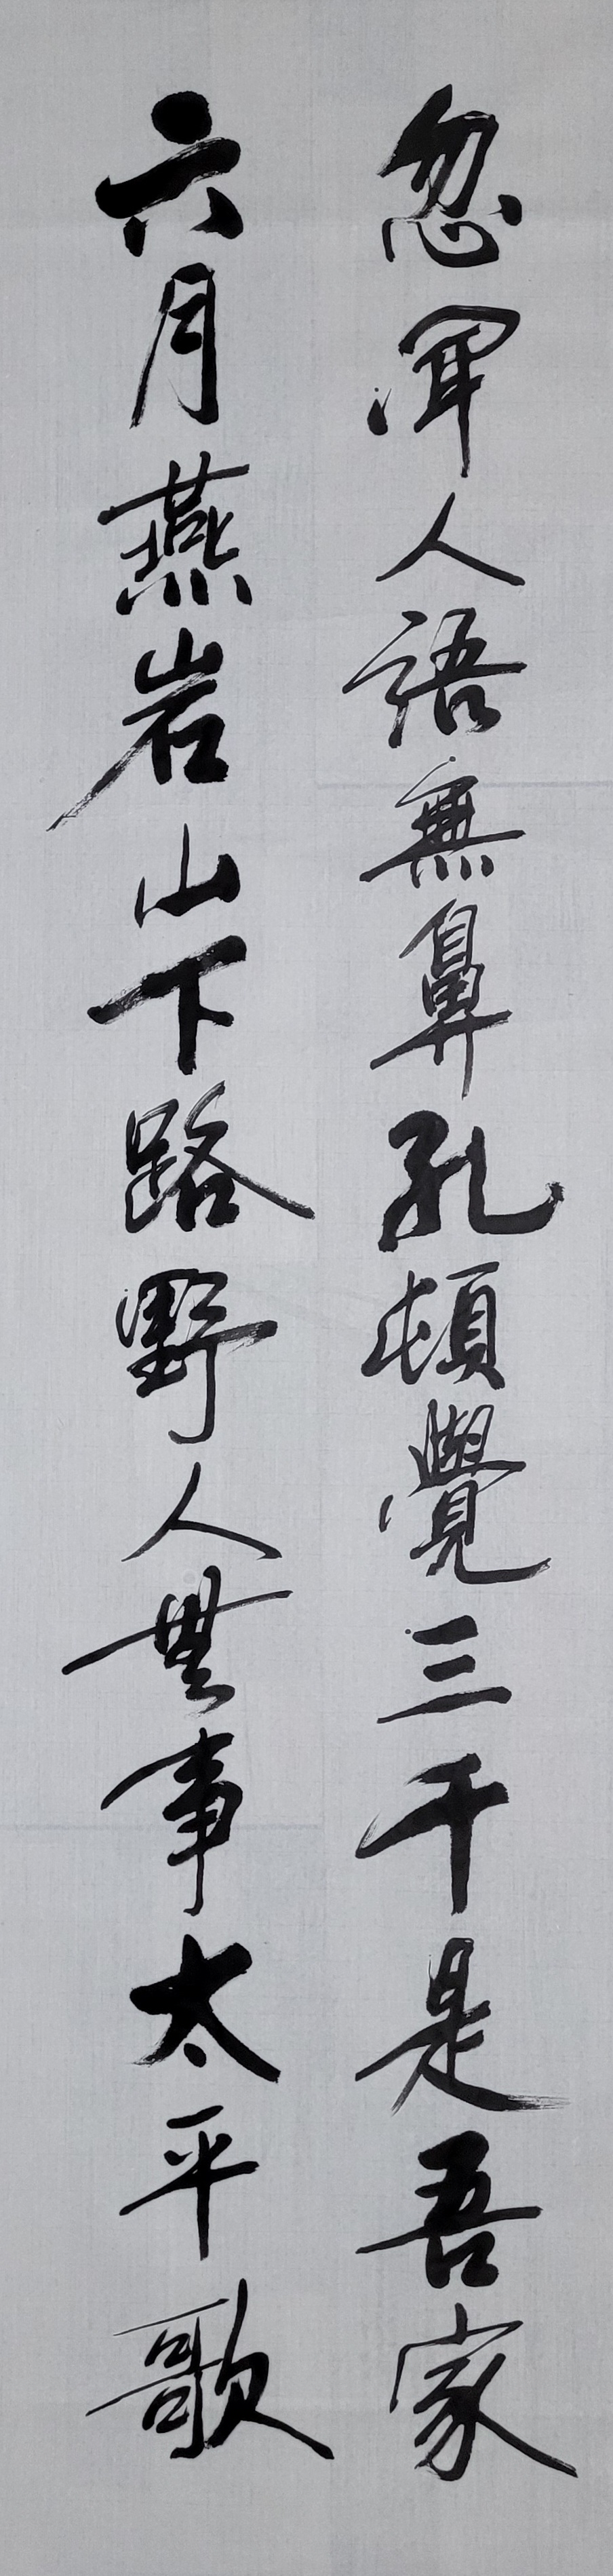 忽聞人語無鼻孔頓覺三千是吾家
六月燕岩山下路野人無事太平歌